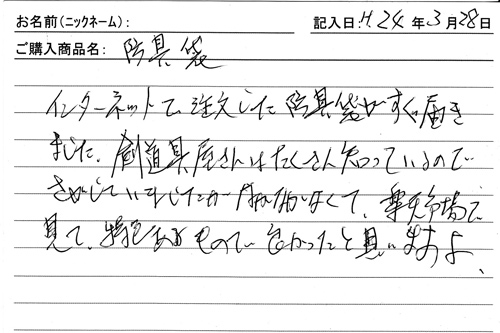 お名前(ニックネーム): 記入日:H.24年3月28日
ご購入商品名: 防具袋
インターネットで注文した防具袋がすぐ届き
ました。剣道具屋さんはたくさん知っているので
さがしていましたが なくて、楽天市場で
見て、特色あるもので良かったと思いますよ、